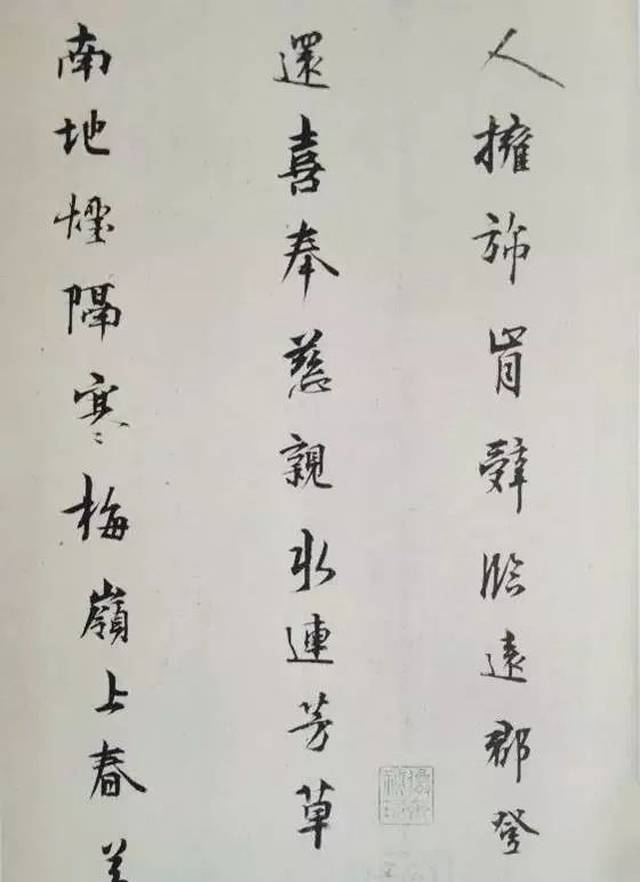 人擁旆肯辭臨遠郡登
還喜奉慈親水連芳草
南地煙隔寒梅嶺上春